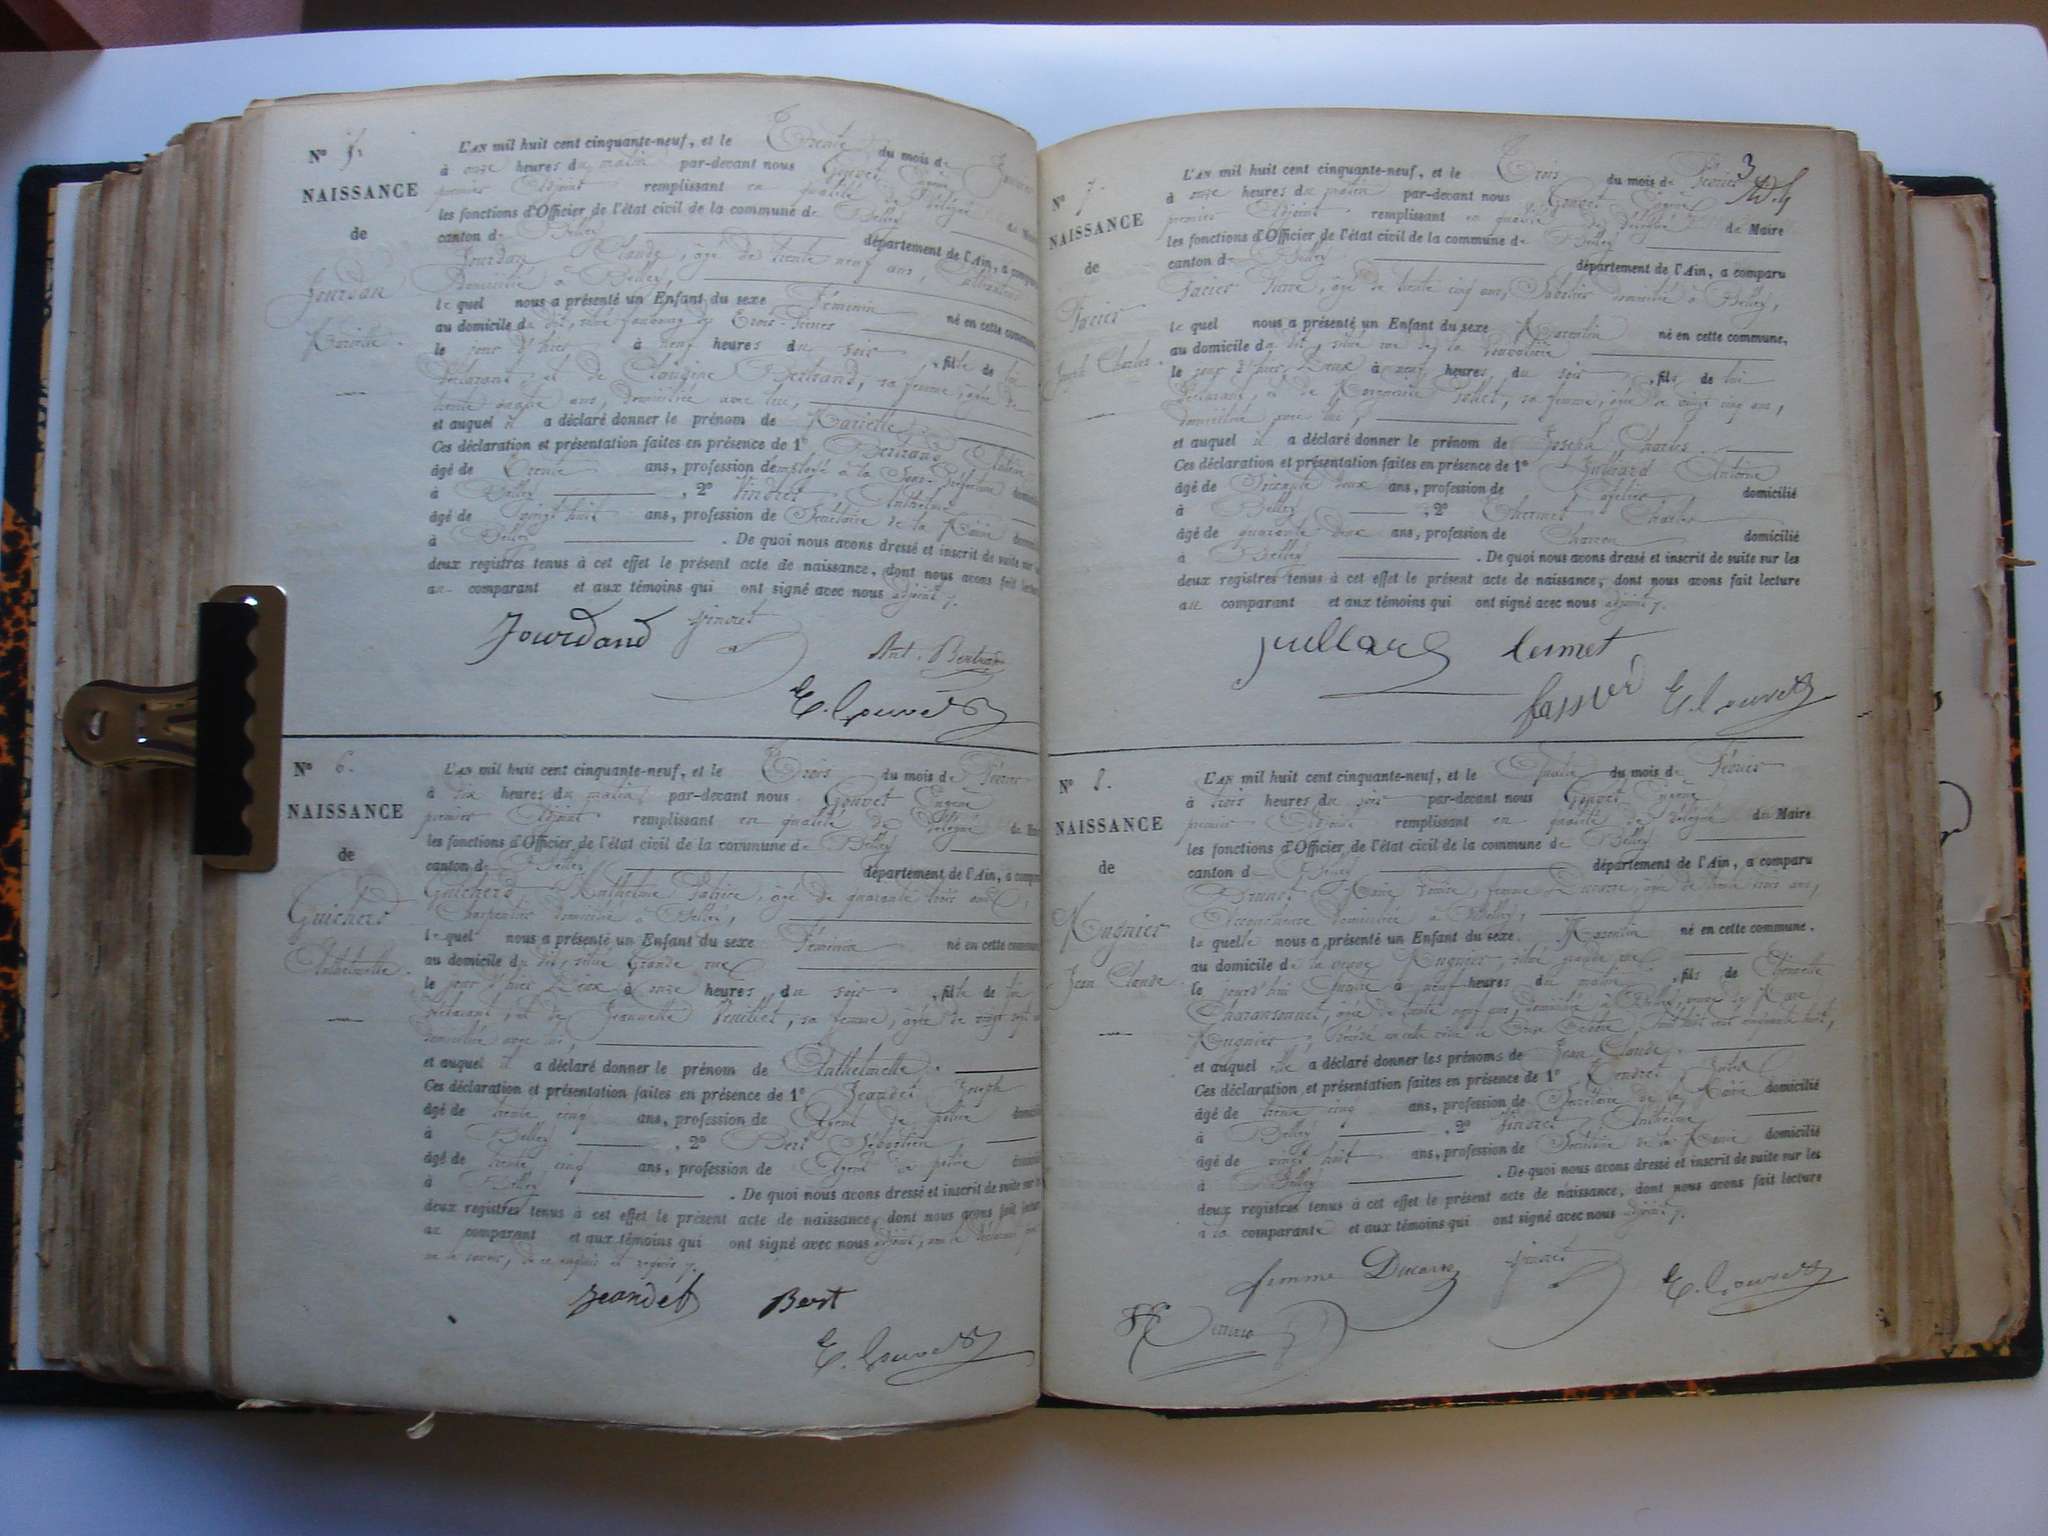 N° 5.
NAISSANCE
de
Jourdan
Mariette.
L'AN mil huit cent cinquante-neuf, et le Trente du mois de Janvier
à onze heures du matin par-devant nous Gouvet Eugène
premier Adjoint remplissant en qualité de Délégué du Maire
les fonctions d'Officier de l'état civil de la commune de Belley
canton de Belley département de l'Ain, a comparu
Jourdan Claude, âgé de trente neuf ans,
Domicilié à Belley,
lequel nous a présenté un Enfant du sexe Féminin né en cette commune,
au domicile du dit, situé faubourg des
le jour d'hier à neuf heures du soir, fille de lui
déclarant, et de Claudine Bertrand, sa femme, âgée de
trente ans, domiciliée avec lui,
et auquel il a déclaré donner le prénom de Mariette
Ces déclaration et présentation faites en présence de 1° Bertrand
âgé de Trente ans, profession d'employé à la Sous-Préfecture domicilié
à Belley, 2° Vindret Anthelme
âgé de vingt huit ans, profession de Secrétaire de la Mairie domicilié
à Belley. De quoi nous avons dressé et inscrit de suite sur les
deux registres tenus à cet effet le présent acte de naissance, dont nous avons fait lecture
au comparant et aux témoins qui ont signé avec nous adjoint.
Jourdand Vindret
Ant. Bertrand
E. Gouvet
N° 6.
NAISSANCE
de
Guicherd
Anthelmette.
L'AN mil huit cent cinquante-neuf, et le Trois du mois de Février
à dix heures du matin par-devant nous Gouvet Eugène
premier Adjoint remplissant en qualité de Délégué du Maire
les fonctions d'Officier de l'état civil de la commune de Belley
canton de Belley département de l'Ain, a comparu
Guicherd, Anthelme Patrice, âgé de quarante trois ans,
Charpentier domicilié à Belley,
lequel nous a présenté un Enfant du sexe Féminin né en cette commune,
au domicile du dit, situé Grande rue
le jour d'hier Deux à onze heures du soir, fille de lui
déclarant, et de Jeannette, sa femme, âgée de vingt sept ans
domiciliée avec lui,
et auquel il a déclaré donner le prénom de Anthelmette.
Ces déclaration et présentation faites en présence de 1° Jeandet Joseph
âgé de trente cinq ans, profession de Agent de police domicilié
à Belley, 2° Bert Sébastien,
âgé de trente cinq ans, profession de Agent de police domicilié
à Belley. De quoi nous avons dressé et inscrit de suite sur les
deux registres tenus à cet effet le présent acte de naissance, dont nous avons fait lecture
au comparant et aux témoins qui ont signé avec nous adjoint,
ne le savoir, de ce enquis et requis.
Jeandet Bert
E. Gouvet
3
N° 7.
NAISSANCE
de
Joseph Charles.
L'AN mil huit cent cinquante-neuf, et le Trois du mois de Février
à onze heures du matin par-devant nous Gouvet Eugène
premier Adjoint remplissant en qualité de Délégué du Maire
les fonctions d'Officier de l'état civil de la commune de Belley
canton de Belley département de l'Ain, a comparu
Pierre, âgé de trente cinq ans, Sabotier domicilié à Belley,
lequel nous a présenté un Enfant du sexe Masculin né en cette commune,
au domicile du dit, situé rue de la
le jour d'hier Deux à neuf heures du soir, fils de lui
déclarant, et de Marguerite, sa femme, âgée de vingt cinq ans,
domiciliée avec lui,
et auquel il a déclaré donner le prénom de Joseph Charles.
Ces déclaration et présentation faites en présence de 1° Juillard Antoine
âgé de Soixante deux ans, profession de Cafetier domicilié
à Belley, 2° Charles
âgé de quarante deux ans, profession de Charron domicilié
à Belley. De quoi nous avons dressé et inscrit de suite sur les
deux registres tenus à cet effet le présent acte de naissance, dont nous avons fait lecture
au comparant et aux témoins qui ont signé avec nous adjoint.
Juillard
E. Gouvet
N° 8.
NAISSANCE
de
Mugnier
Jean Claude
L'AN mil huit cent cinquante-neuf, et le Quatre du mois de Février
à trois heures du soir par-devant nous Gouvet Eugène
premier Adjoint remplissant en qualité de Délégué du Maire
les fonctions d'Officier de l'état civil de la commune de Belley
canton d Belley département de l'Ain, a comparu
Marie, femme Ducarre, âgée de trente trois ans,
domiciliée à Belley,
laquelle nous a présenté un Enfant du sexe Masculin né en cette commune.
au domicile de la veuve Mugnier, situé grande rue
le jourd'hui Quatre à neuf heures du matin, fils de
âgée de trente neuf ans, domiciliée à Belley, veuve de Marc
Mugnier, décédé en cette ville le mil huit cent cinquante huit,
et auquel elle a déclaré donner les prénoms de Jean Claude.
Ces déclaration et présentation faites en présence de 1°
âgé de trente cinq ans, profession de Secrétaire de la Mairie domicilié
à Belley, 2° Vindret Anthelme
âgé de vingt huit ans, profession de Secrétaire de la Mairie domicilié
à Belley. De quoi nous avons dressé et inscrit de suite sur les
deux registres tenus à cet effet le présent acte de naissance, dont nous avons fait lecture
à la comparante et aux témoins qui ont signé avec nous adjoint.
femme Ducarre Vindret
E. Gouvet